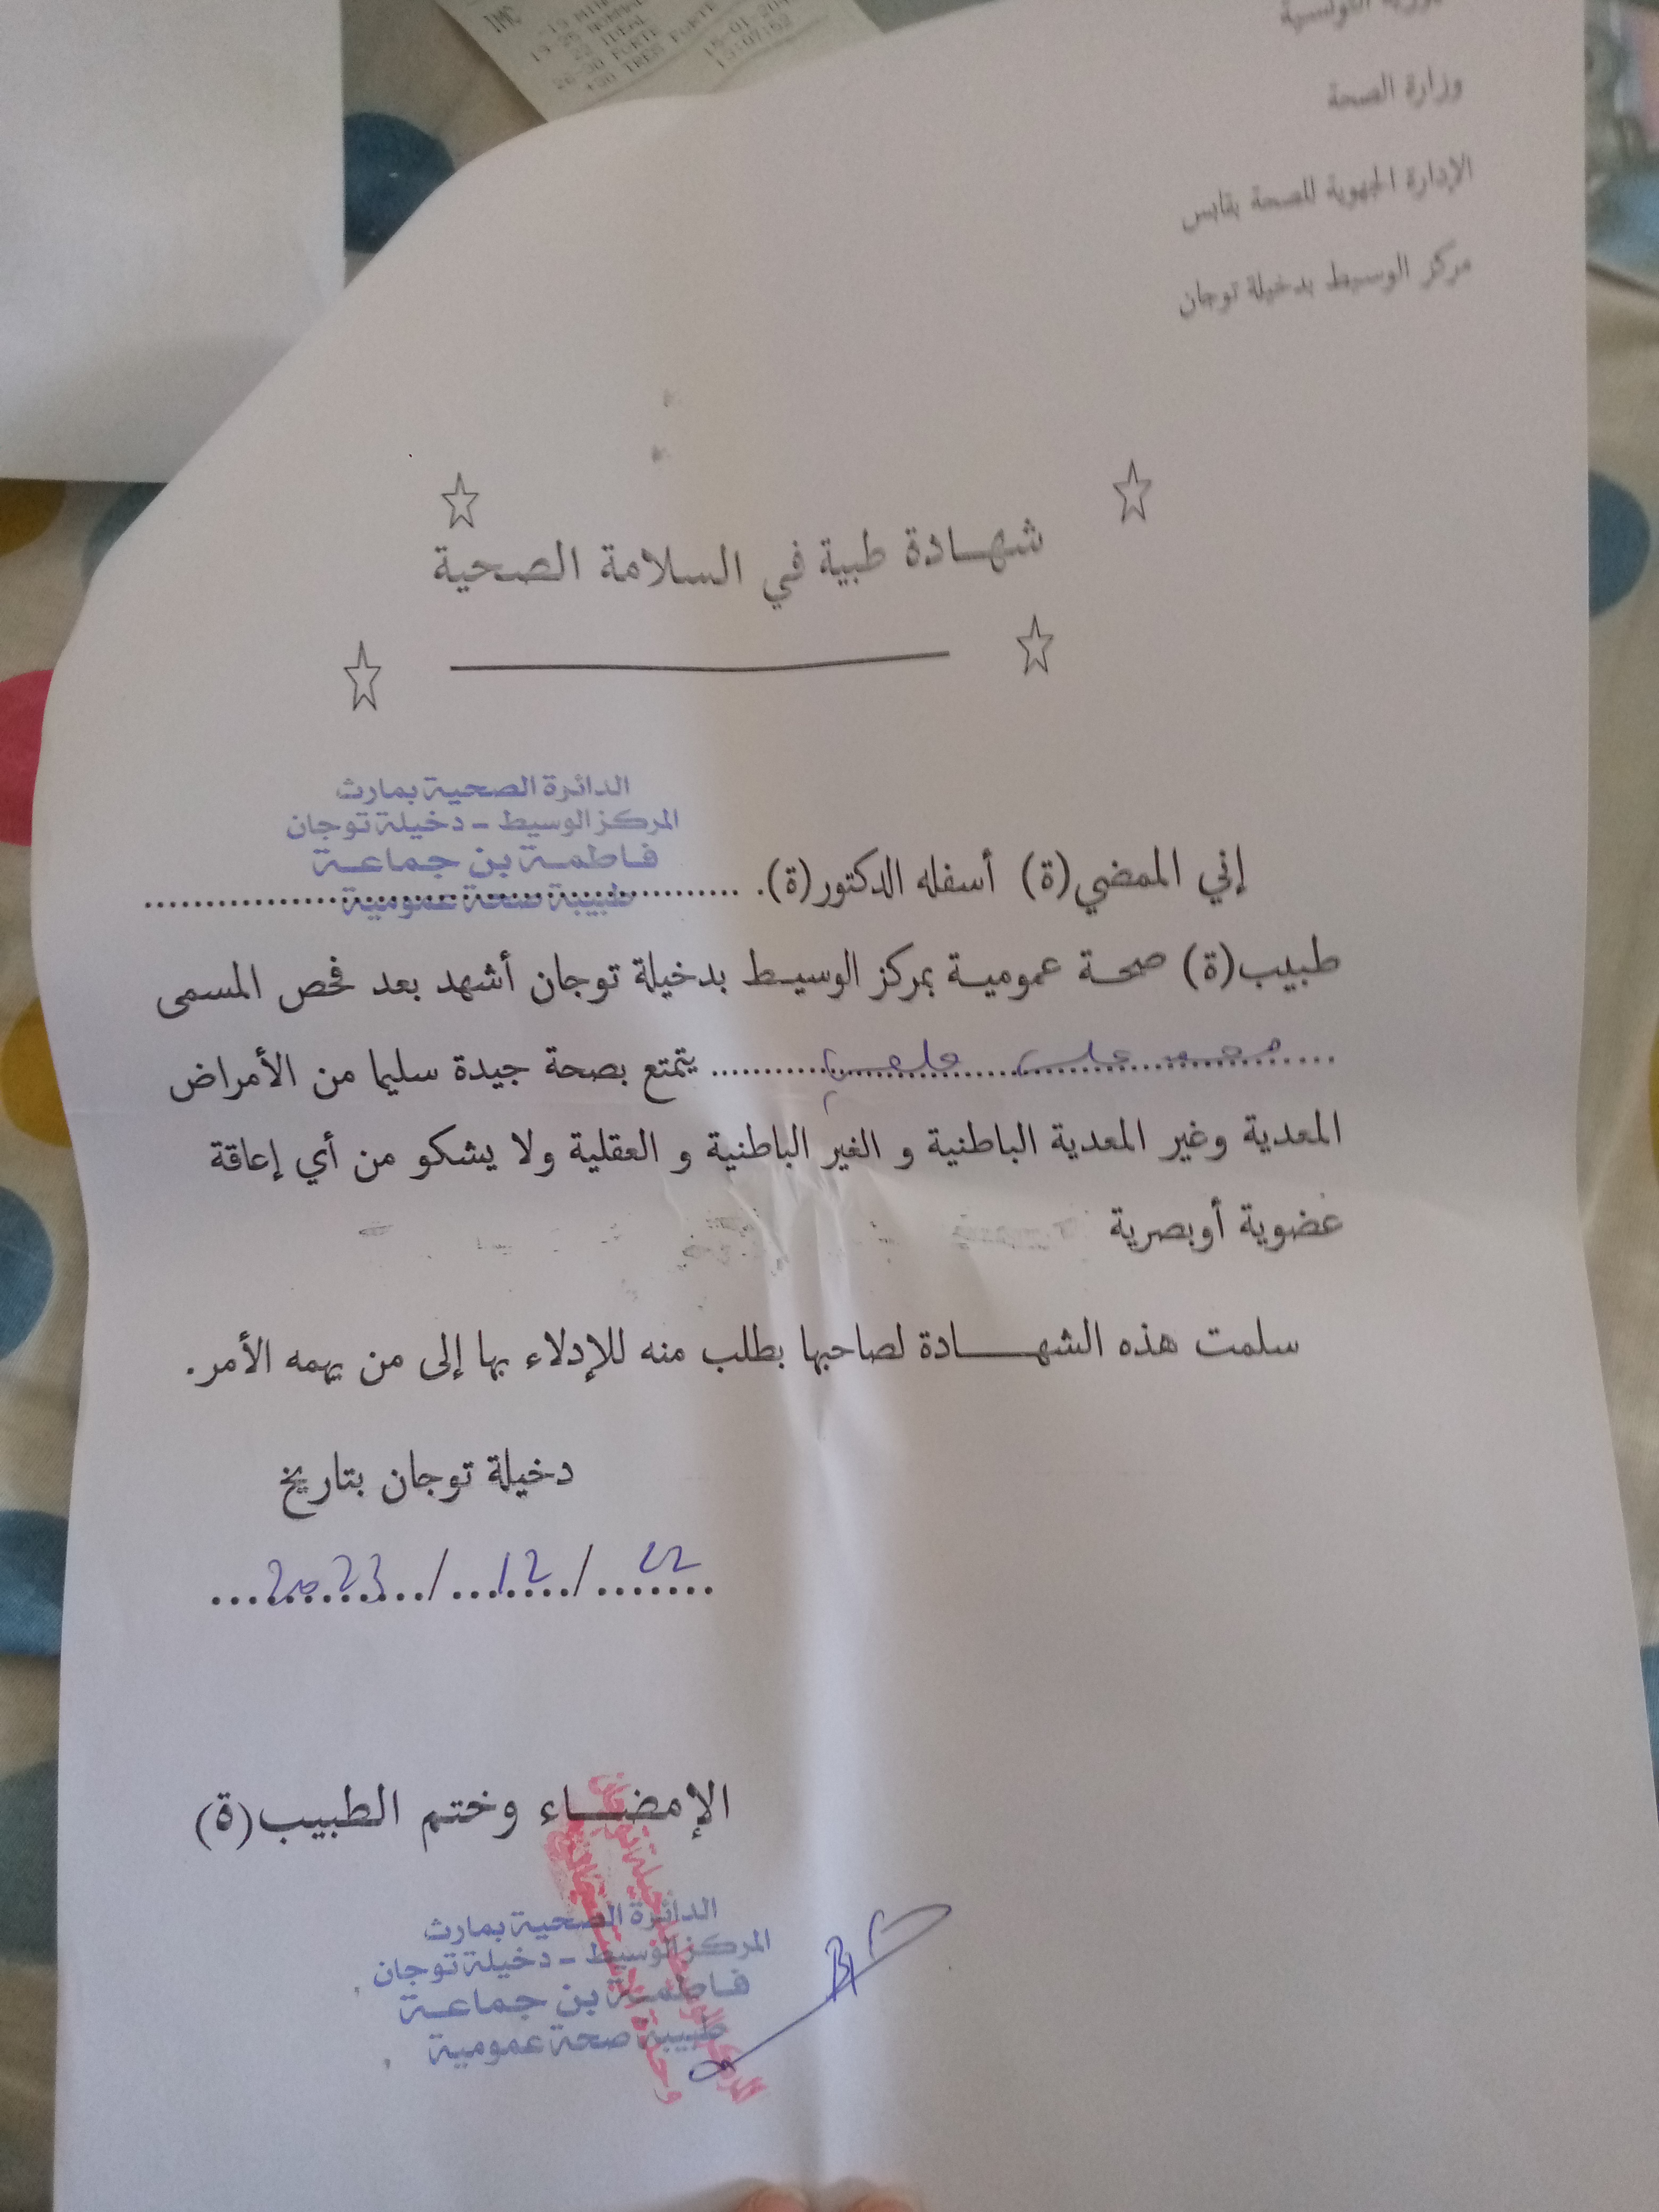 IMC
-19 MINCE
19-25 NORMAL
22 IDEAL
26-30 FORTE
+30 TRES FORTE
13:07:52
التونسية
وزارة الصحة
الإدارة الجهوية للصحة بقابس
مركز الوسيط بدخيلة توجان
شهـادة طبية في السلامة الصحية
الدائرة الصحية بمارث
المركز الوسيط - دخيلة توجان
فاطمة بن جماعة
طبيبة صحة عمومية
إني الممضي(ة) أسفله الدكتور(ة).
طبيب(ة) صحة عمومية بمركز الوسيط بدخيلة توجان أشهد بعد فحص المسمى
محمد علي يتمتع بصحة جيدة سليما من الأمراض
المعدية وغير المعدية الباطنية و الغير الباطنية و العقلية ولا يشكو من أي إعاقة
عضوية أوبصرية
سلمت هذه الشهـــادة لصاحبها بطلب منه للإدلاء بها إلى من يهمه الأمر.
دخيلة توجان بتاريخ
22/12/2023
الإمضـاء وختم الطبيب(ة)
الدائرة الصحية بمارث
المركز الوسيط - دخيلة توجان
فاطمة بن جماعة
طبيبة صحة عمومية